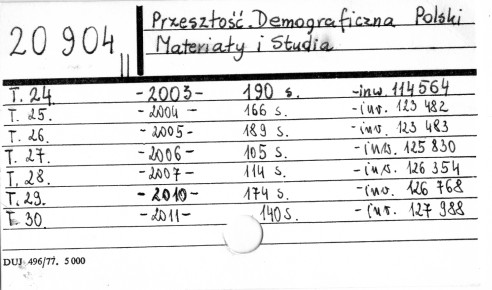 20 904 II
Przeszłość Demograficzna Polski
Materiały i Studia
T. 24. - 2003 - 190 s. - inw. 114564
T. 25. - 2004 - 166 s. - inw. 123 482
T. 26. - 2005 - 189 s. - inw. 123 483
T. 27. - 2006 - 105 s. - inw. 125 830
T. 28. - 2007 - 114 s. - inw. 126 354
T. 29. - 2010 - 174 s. - inw. 126 768
T. 30. - 2011 - 140 s. - inw. 127 988
DUJ 496/77. 5000